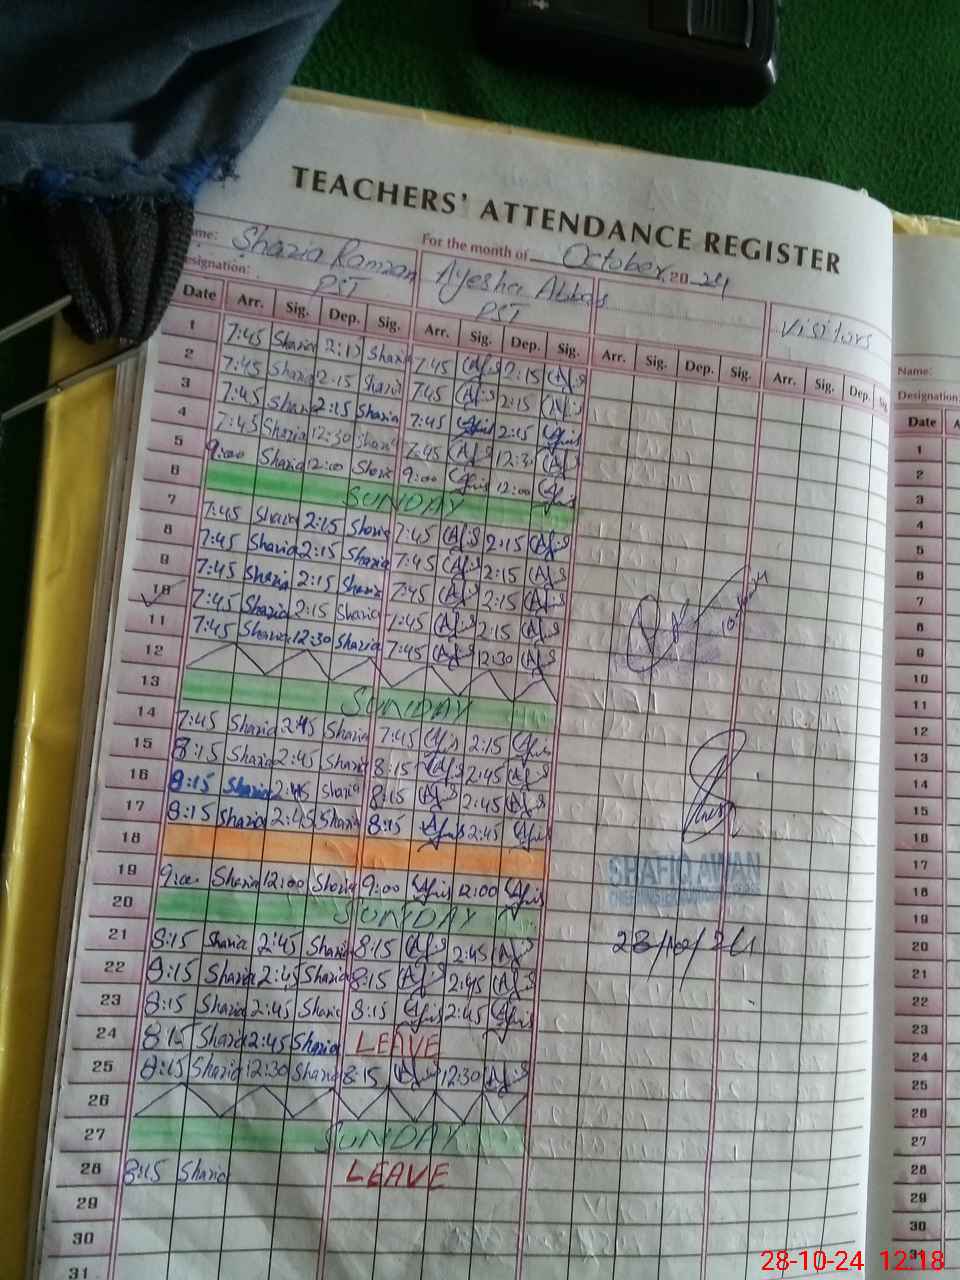 TEACHERS' ATTENDANCE REGISTER
me: Shazia Ramzan For the month of October 2024
esignation: PST Ayesha Abbas PST Visitors
Date Arr. Sig. Dep. Sig. Arr. Sig. Dep. Sig. Arr. Sig. Dep. Sig. Arr. Sig. Dep.
1 7:45 Shazia 2:15 7:45 2:15
2 7:45 Shazia 2:15 Shazia 7:45 2:15
3 7:45 2:15 Shazia 7:45 2:15
4 7:45 Shazia 12:30 Shazia 7:45 12:30
5 9:00 Shazia 12:00 Shazia 9:00 12:00
6 SUNDAY
7 7:45 Shazia 2:15 Shazia 7:45 2:15
8 7:45 Shazia 2:15 Shazia 7:45 2:15
9 7:45 Shazia 2:15 Shazia 7:45 2:15
10 7:45 Shazia 2:15 Shazia 7:45 2:15
11 7:45 Shazia 12:30 Shazia 7:45 12:30
12
13 SUNDAY
14 7:45 Shazia 2:45 Shazia 7:45 2:15
15 8:15 Shazia 2:45 Shazia 8:15 2:45
16 8:15 Shazia 2:45 Shazia 8:15 2:45
17 8:15 Shazia 2:45 Shazia 8:15 2:45
18
19 9:00 Shazia 12:00 Shazia 9:00 12:00
20 SUNDAY
21 8:15 Shazia 2:45 Shazia 8:15 2:45
22 8:15 Shazia 2:45 Shazia 8:15 2:45
23 8:15 Shazia 2:45 Shazia 8:15 2:45
24 8:15 Shazia 2:45 Shazia LEAVE
25 8:15 Shazia 12:30 Shazia 8:15 12:30
26
27 SUNDAY
28 8:15 Shazia LEAVE
29
30
31
SHAFIQ AWAN
28/10/24
Name:
Designation:
Date A
1
2
3
4
5
6
7
8
9
10
11
12
13
14
15
16
17
18
19
20
21
22
23
24
25
26
27
28
29
30
31
28-10-24 12:18